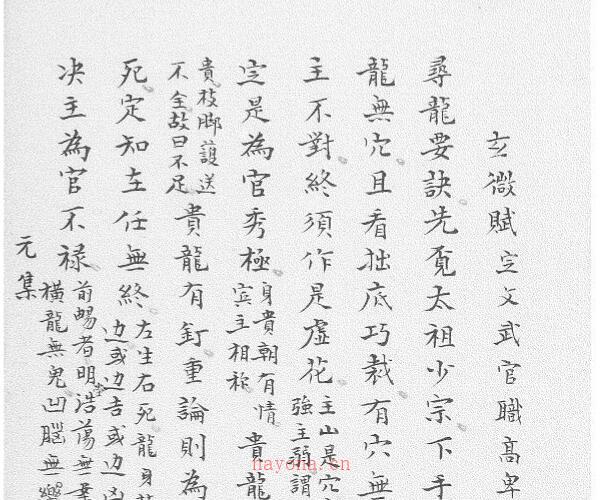 玄微賦定文武官職高卑
尋龍要訣先覓太祖少宗下手
龍無穴且看拙底巧裁有穴無
主不對終須作是虛花主山是穴
強主弱謂
定是為官秀極身貴朝有情
賓主相称貴龍
貴枝脚護送
不全故曰不足貴龍有釘重論則為
死定知在任無終左生右死龍身
边或边吉或边凶
决主為官不禄前暘者明堂浩蕩無
橫龍無鬼凹腦無樂
元集
nayona.cn